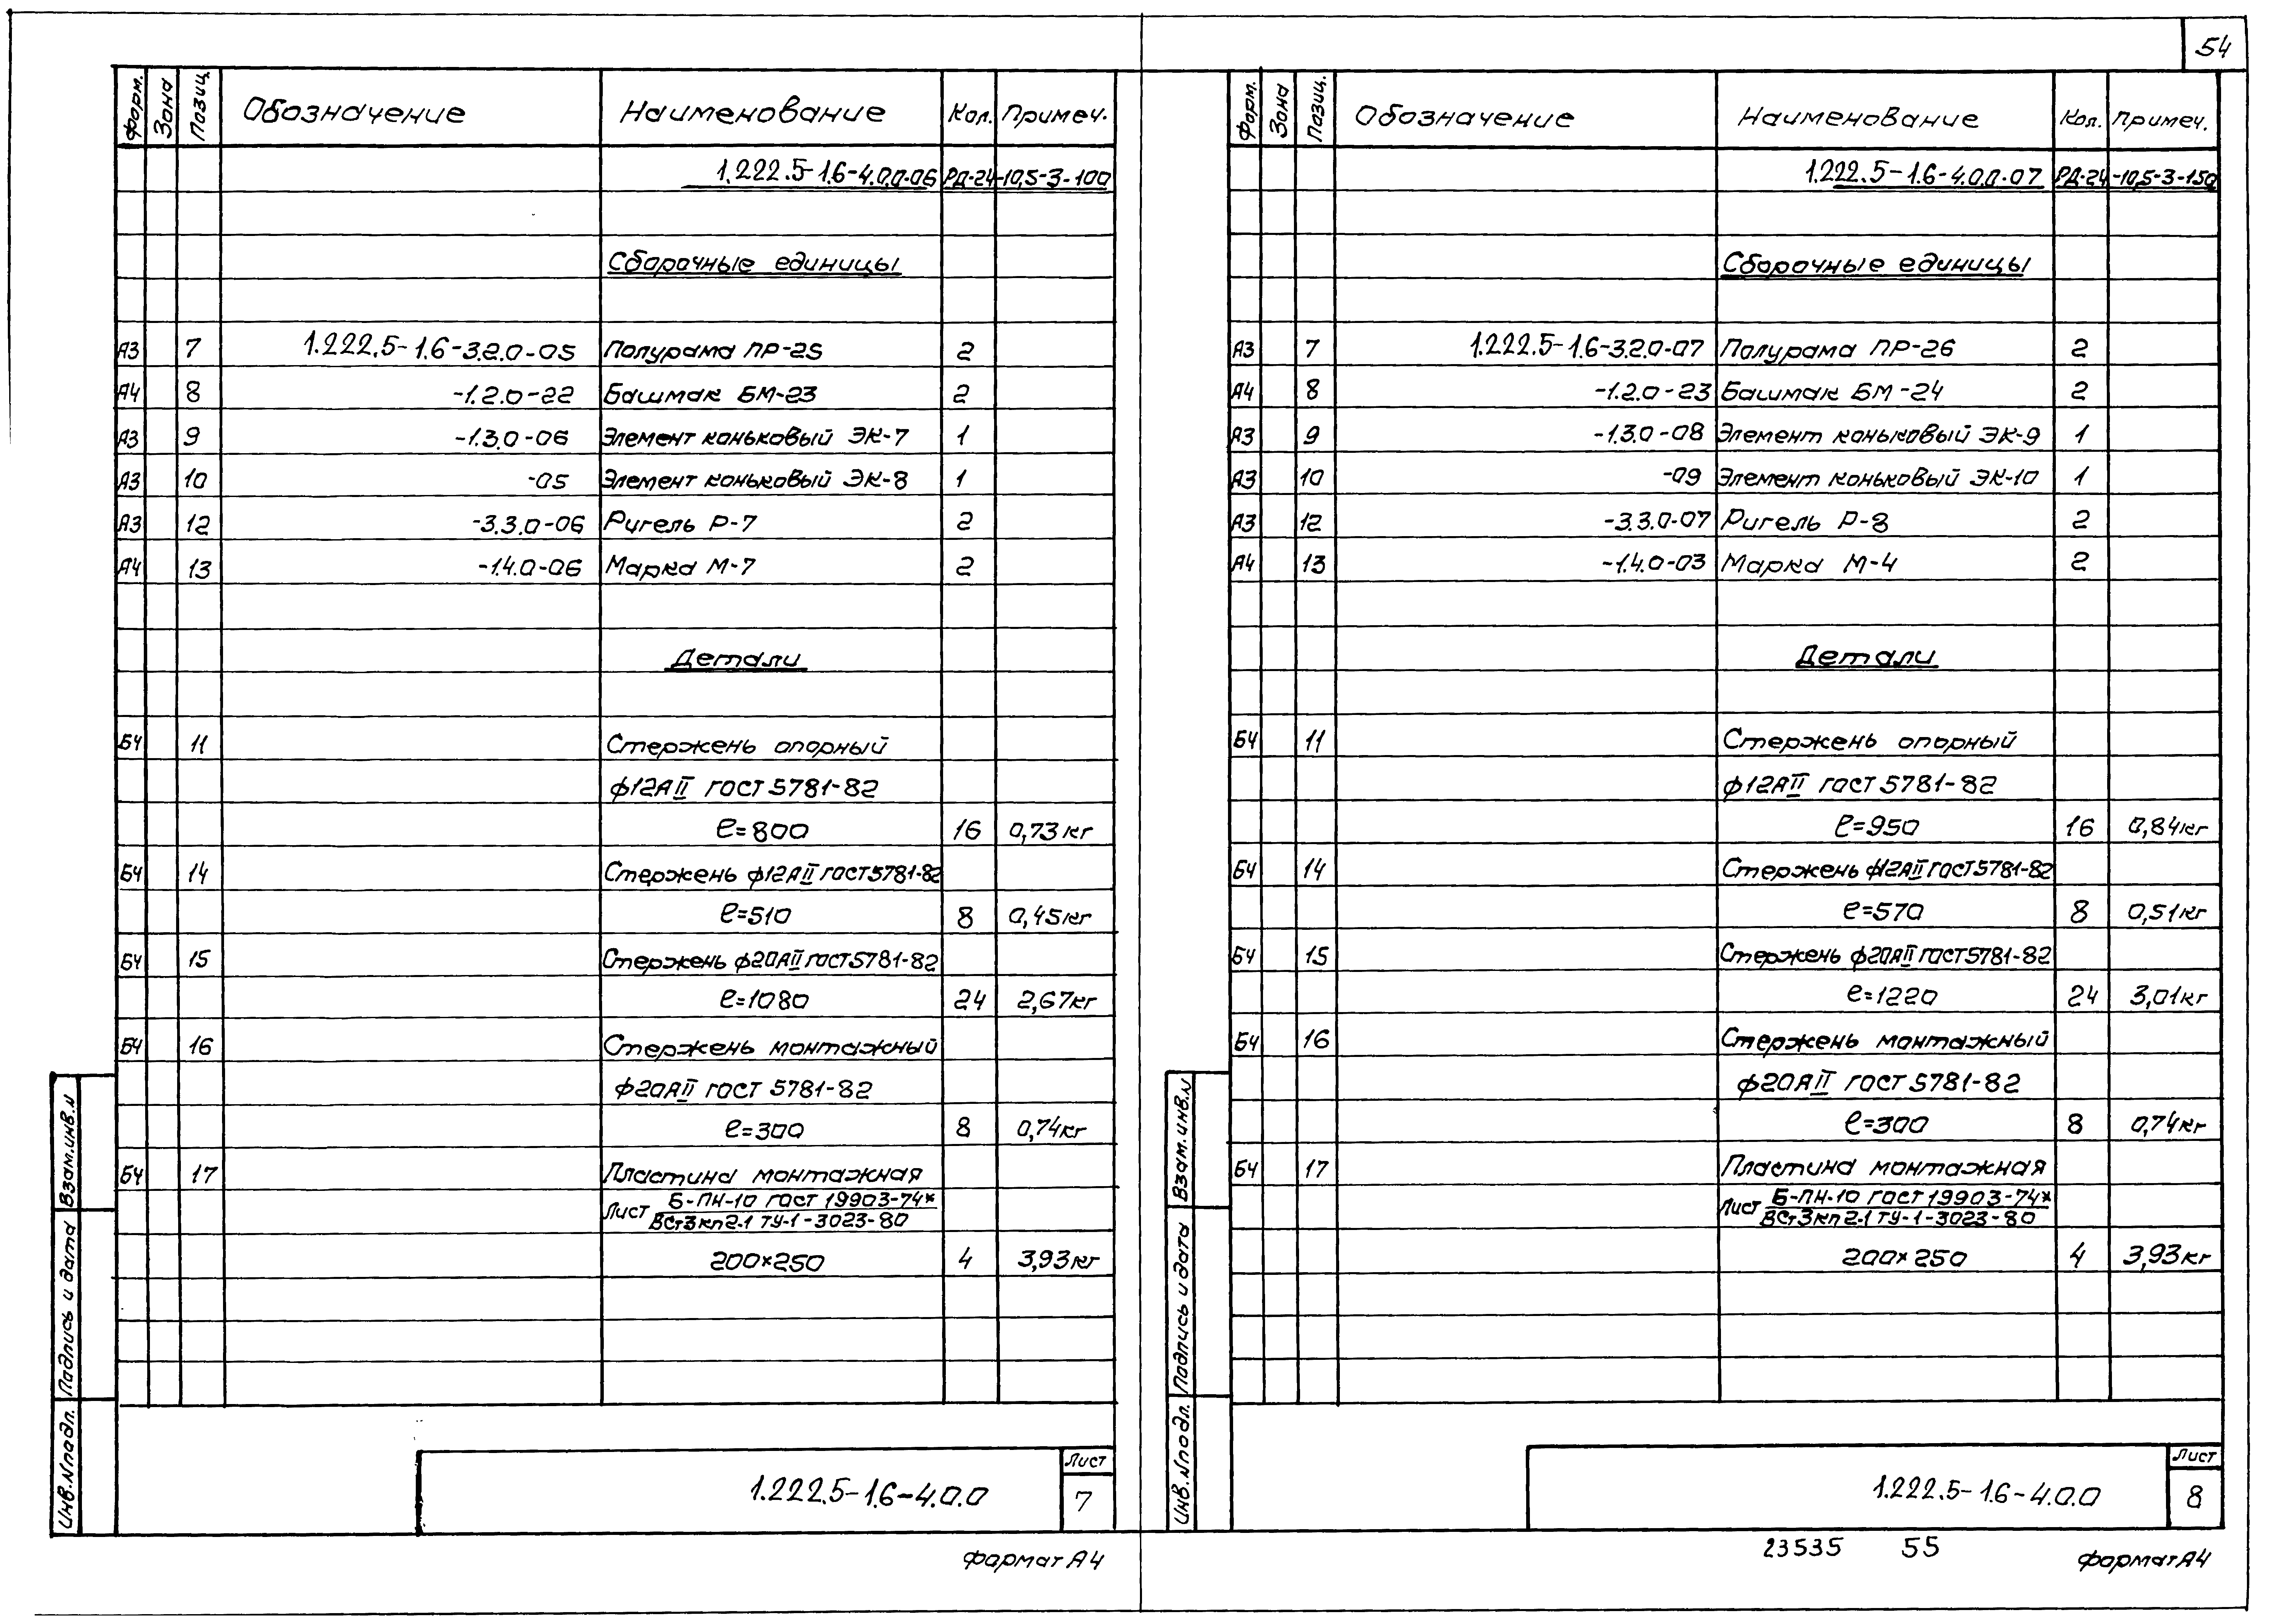 54
Форм. Зона Позиц. Обозначение Наименование Кол. Примеч.
1.222.5-1.6-4.0.0-06 РД-24-10,5-3-100
Сборочные единицы
А3 7 1.222.5-1.6-3.2.0-05 Полурама ПР-25 2
А4 8 -1.2.0-22 Башмак БМ-23 2
А3 9 -1.3.0-06 Элемент коньковый ЭК-7 1
А3 10 -05 Элемент коньковый ЭК-8 1
А3 12 -3.3.0-06 Ригель Р-7 2
А4 13 -1.4.0-06 Марка М-7 2
Детали
БЧ 11 Стержень опорный
ф12АII ГОСТ 5781-82
ℓ=800 16 0,73кг
БЧ 14 Стержень ф12АII ГОСТ 5781-82
ℓ=510 8 0,45кг
БЧ 15 Стержень ф20АII ГОСТ 5781-82
ℓ=1080 24 2,67кг
БЧ 16 Стержень монтажный
ф20АII ГОСТ 5781-82
ℓ=300 8 0,74кг
БЧ 17 Пластина монтажная
Лист Б-ПН-10 ГОСТ 19903-74*
ВСт3кп2-1 ТУ-1-3023-80
200×250 4 3,93кг
Взам.инв.N
Подпись и дата
Инв.Nподл.
1.222.5-1.6-4.0.0
Лист
7
Формат А4
Форм. Зона Позиц. Обозначение Наименование Кол. Примеч.
1.222.5-1.6-4.0.0-07 РД-24-10,5-3-150
Сборочные единицы
А3 7 1.222.5-1.6-3.2.0-07 Полурама ПР-26 2
А4 8 -1.2.0-23 Башмак БМ-24 2
А3 9 -1.3.0-08 Элемент коньковый ЭК-9 1
А3 10 -09 Элемент коньковый ЭК-10 1
А3 12 -3.3.0-07 Ригель Р-8 2
А4 13 -1.4.0-03 Марка М-4 2
Детали
БЧ 11 Стержень опорный
ф12АII ГОСТ 5781-82
ℓ=950 16 0,84кг
БЧ 14 Стержень ф12АII ГОСТ 5781-82
ℓ=570 8 0,51кг
БЧ 15 Стержень ф20АII ГОСТ 5781-82
ℓ=1220 24 3,01кг
БЧ 16 Стержень монтажный
ф20АII ГОСТ 5781-82
ℓ=300 8 0,74кг
БЧ 17 Пластина монтажная
Лист Б-ПН-10 ГОСТ 19903-74*
ВСт3кп2-1 ТУ-1-3023-80
200×250 4 3,93кг
Взам.инв.N
Подпись и дата
Инв.Nподл.
1.222.5-1.6-4.0.0
Лист
8
23535 55
Формат А4